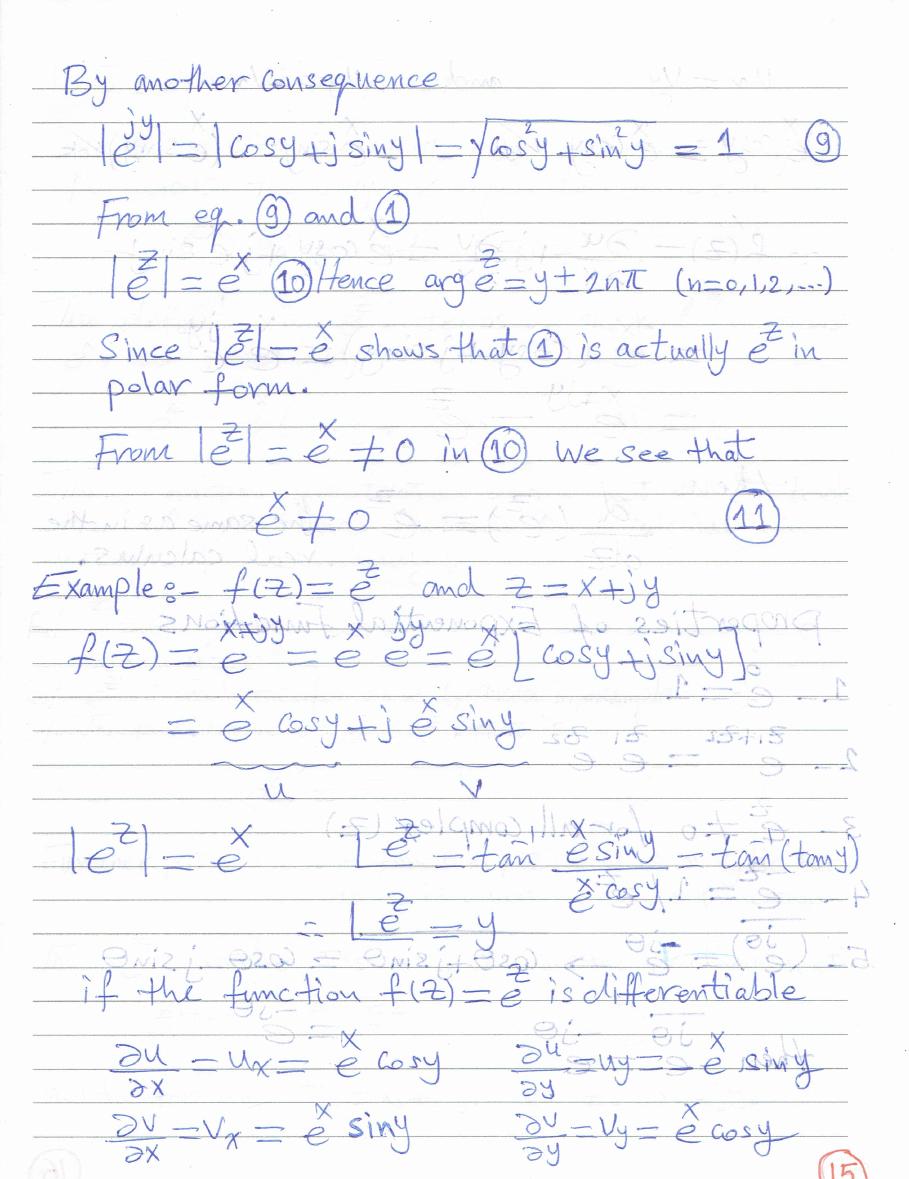 By another consequence
|e^{jy}| = |cosy+j siny| = √(cos²y + sin²y) = 1 ⑨
From eq. ⑨ and ①
|e^z| = e^x ⑩ Hence arg e^z = y ± 2nπ (n=0,1,2,...)
Since |e^z| = e^x shows that ① is actually e^z in
polar form.
From |e^z| = e^x ≠ 0 in ⑩ we see that
e^x ≠ 0 ⑪
Example:- f(z) = e^z and z = x+jy
f(z) = e^{x+jy} = e^x e^{jy} = e^x [cosy+jsiny]
= e^x cosy + j e^x siny
u v
|e^z| = e^x ∠e^z = tan (e^x siny)/(e^x cosy) = tan(tany)
= ∠e^z = y
if the function f(z) = e^z is differentiable
∂u/∂x = ux = e^x cosy ∂u/∂y = uy = -e^x siny
∂v/∂x = vx = e^x siny ∂v/∂y = vy = e^x cosy
15